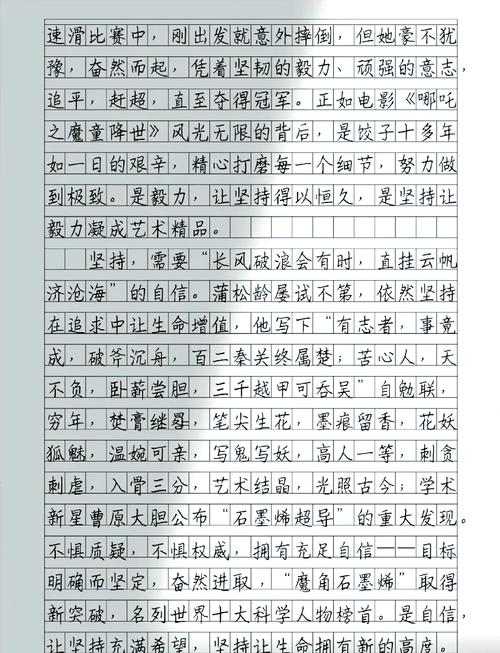 速滑比赛中，刚出发就意外摔倒，但她豪不犹
豫，奋然而起，凭着坚韧的毅力、顽强的意志，
追平，赶超，直至夺得冠军。正如电影《哪吒
之魔童降世》风光无限的背后，是饺子十多年
如一日的艰辛，精心打磨每一个细节，努力做
到极致。是毅力，让坚持得以恒久，是坚持让
毅力凝成艺术精品。
坚持，需要“长风破浪会有时，直挂云帆
济沧海”的自信。蒲松龄屡试不第，依然坚持
在追求中让生命增值，他写下“有志者，事竟
成，破斧沉舟，百二秦关终属楚；苦心人，天
不负，卧薪尝胆，三千越甲可吞吴”自勉联，
穷年，焚膏继晷，笔尖生花，墨痕留香，花妖
狐魅，温婉可亲，写鬼写妖，高人一等，刺贪
刺虐，入骨三分，艺术结晶，光照古今；学术
新星曹原大胆公布“石墨烯超导”的重大发现。
不惧质疑，不惧权威，拥有充足自信——目标
明确而坚定，奋然进取，“魔角石墨烯”取得
新突破，名列世界十大科学人物榜首。是自信，
让坚持充满希望，坚持让生命拥有新的高度。